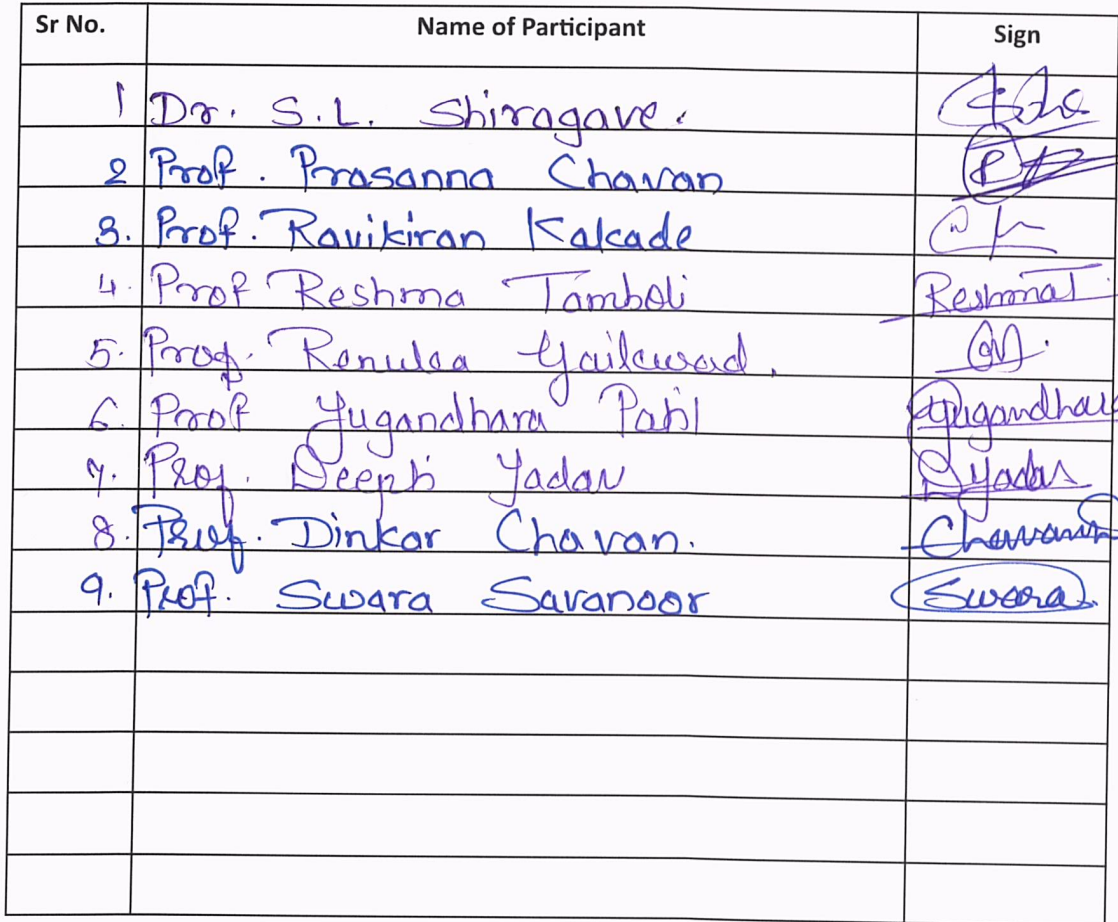 Sr No. Name of Participant Sign
1 Dr. S.L. Shiragave.
2 Prof. Prasanna Chavan
3. Prof. Ravikiran Kakade
4. Prof Reshma Tamboli ReshmaT
5. Prof. Renuka Gaikwad.
6. Prof Yugandhara Patil Yugandhara
7. Prof. Deepti Yadav DYadav
8. Prof. Dinkar Chavan. Chavan
9. Prof. Swara Savanoor Swara